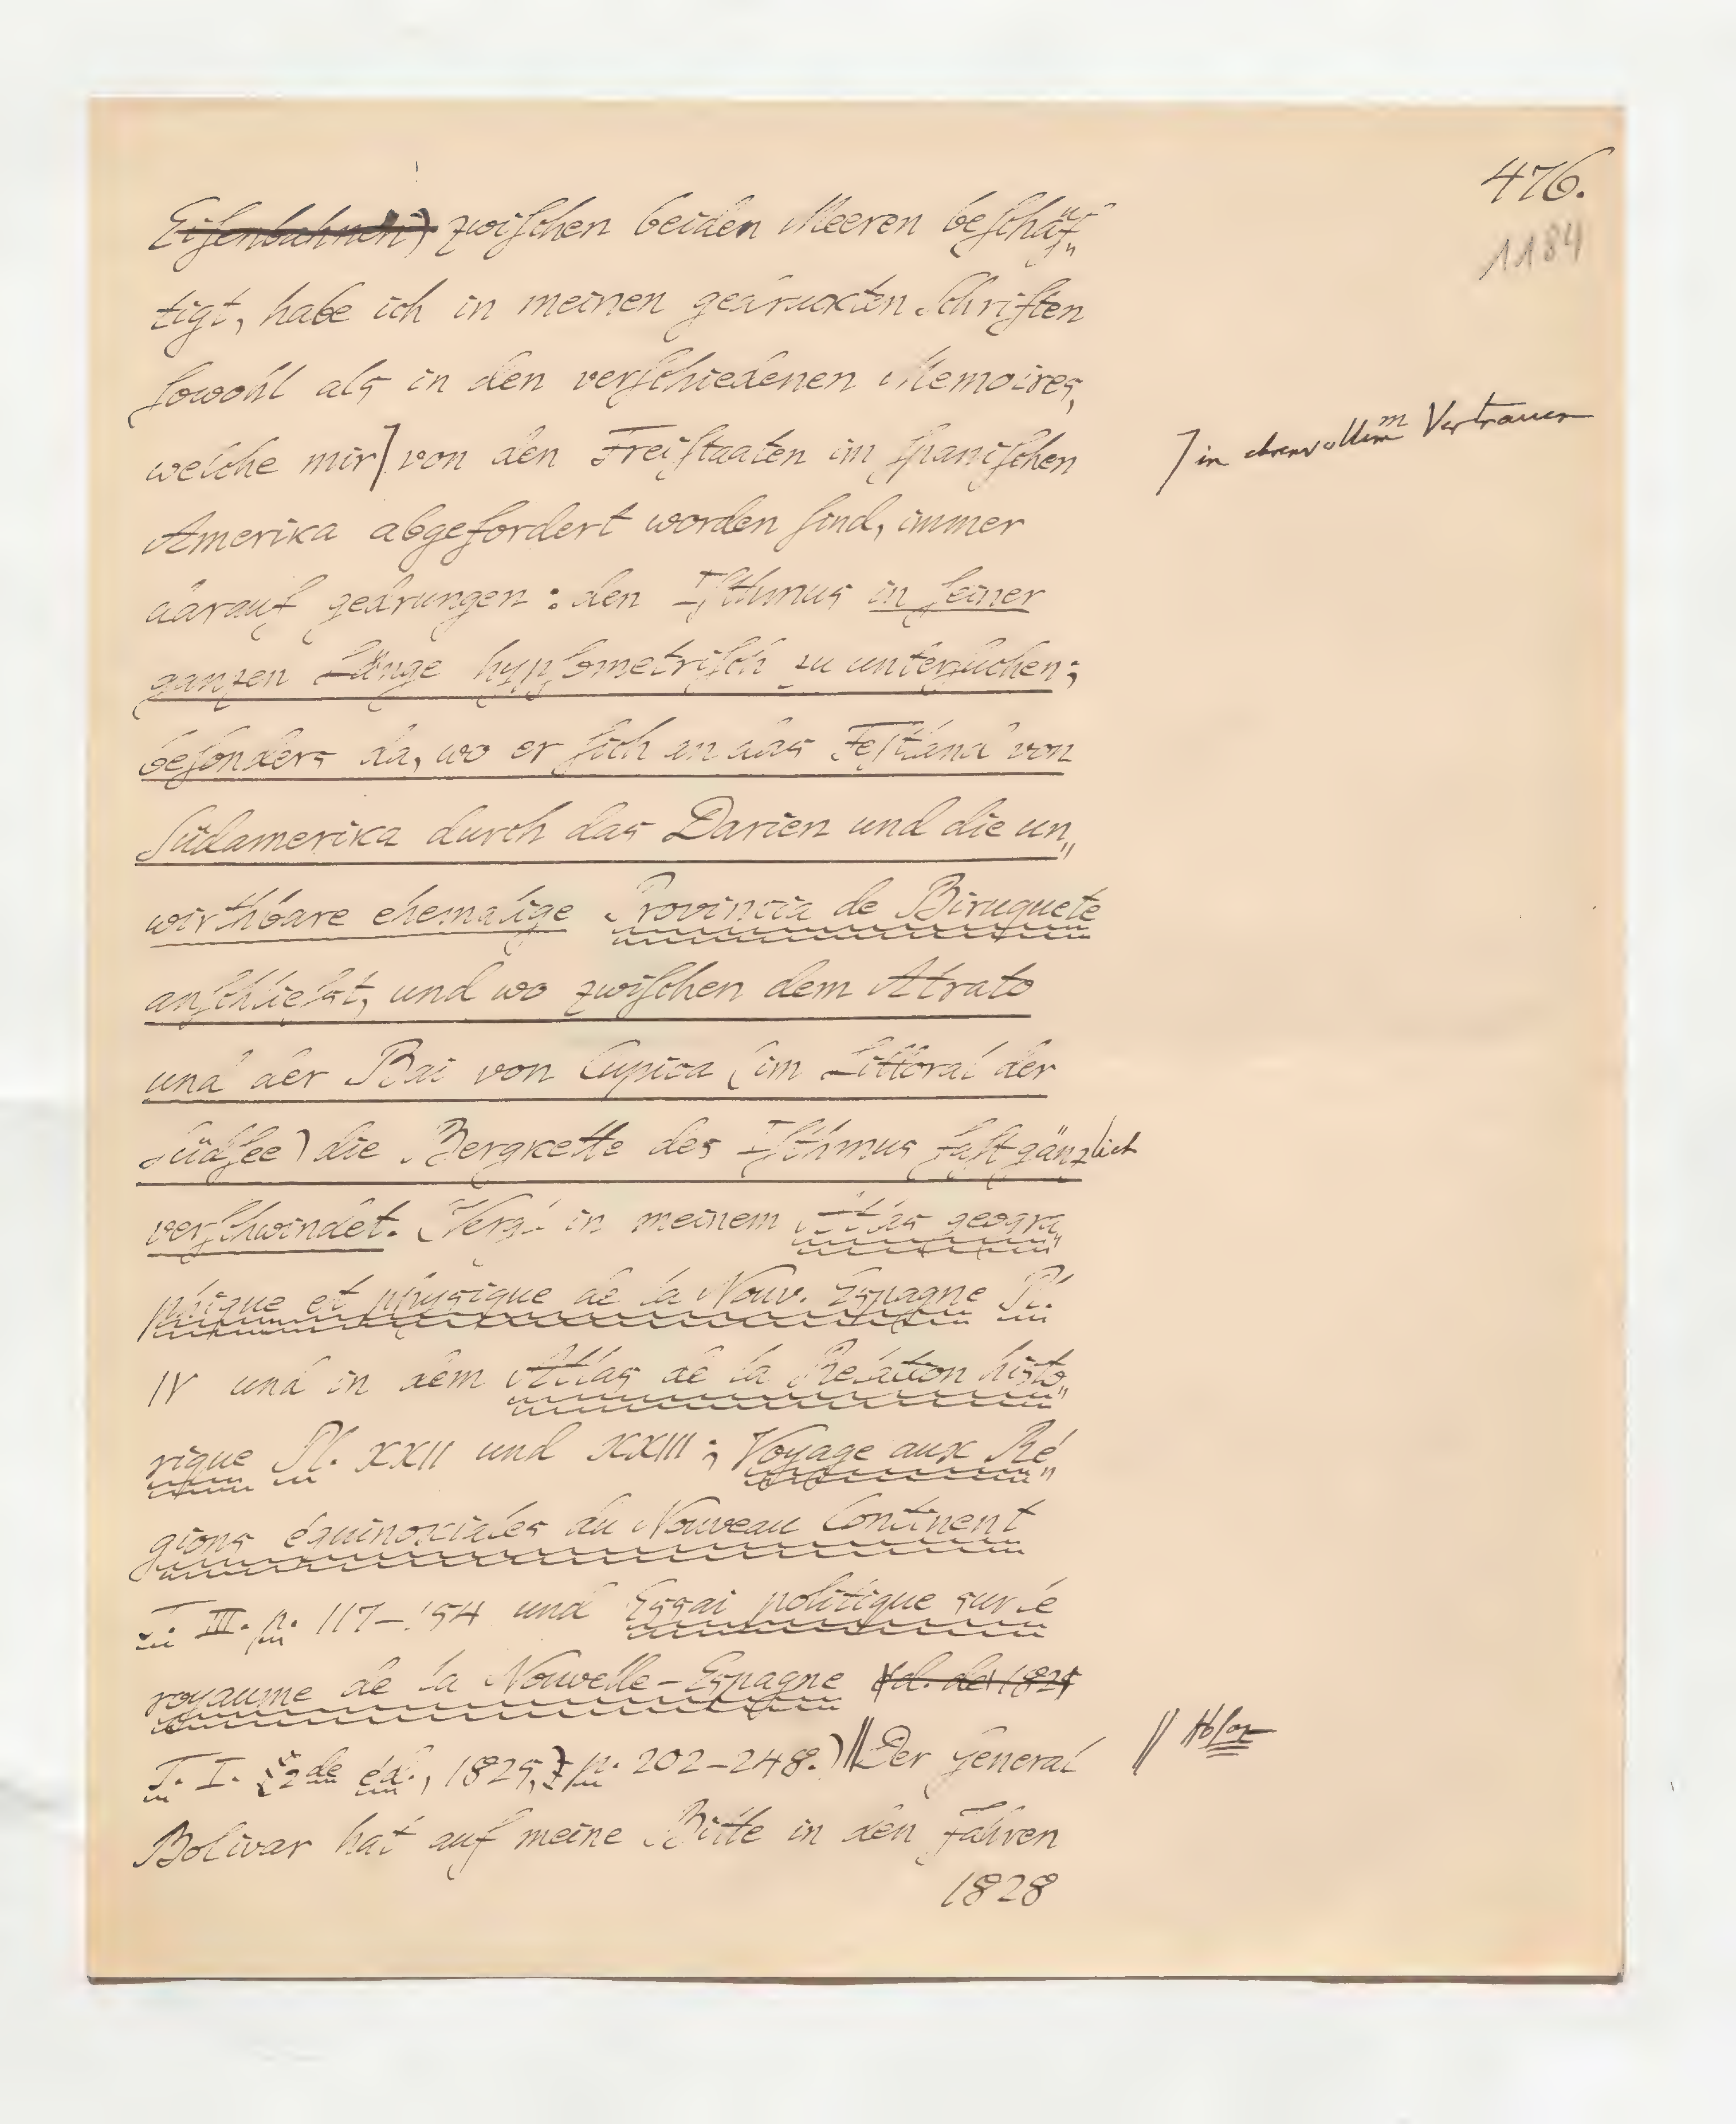 476.
1184
Eisenbahnen) zwischen beiden Meeren beschäf„
tigt, habe ich in meinen gedruckten Schriften
sowohl als in den verschiedenen Memoires,
welche mir] von den Freistaaten im spanischen
] in ehrenvollem Vertrauen
Amerika abgefordert worden sind, immer
darauf gedrungen: den Isthmus in seiner
ganzen Länge hypsometrisch zu untersuchen;
besonders da, wo er sich an das Festland von
Südamerika durch das Darien und die un„
wirthbare ehemalige Provincia de Biruquete
anschließt, und wo zwischen dem Atrato
und der Bai von Cupica (im Littoral der
Südsee) die Bergkette des Isthmus fast gänzlich
verschwindet. (Vergl. in meinem Atlas géogra„
phique et physique de la Nouv. Espagne Pl.
IV und in dem Atlas de la Relation histo„
rique Pl. XXII und XXIII; Voyage aux Ré„
gions équinoxiales du Nouveau Continent
T. III. p. 117–154 und Essai politique sur le
royaume de la Nouvelle-Espagne
T. I. (2de éd., 1825,) p. 202–248.) || Der General
|| Absaz
Bolivar hat auf meine Bitte in den Jahren
1828